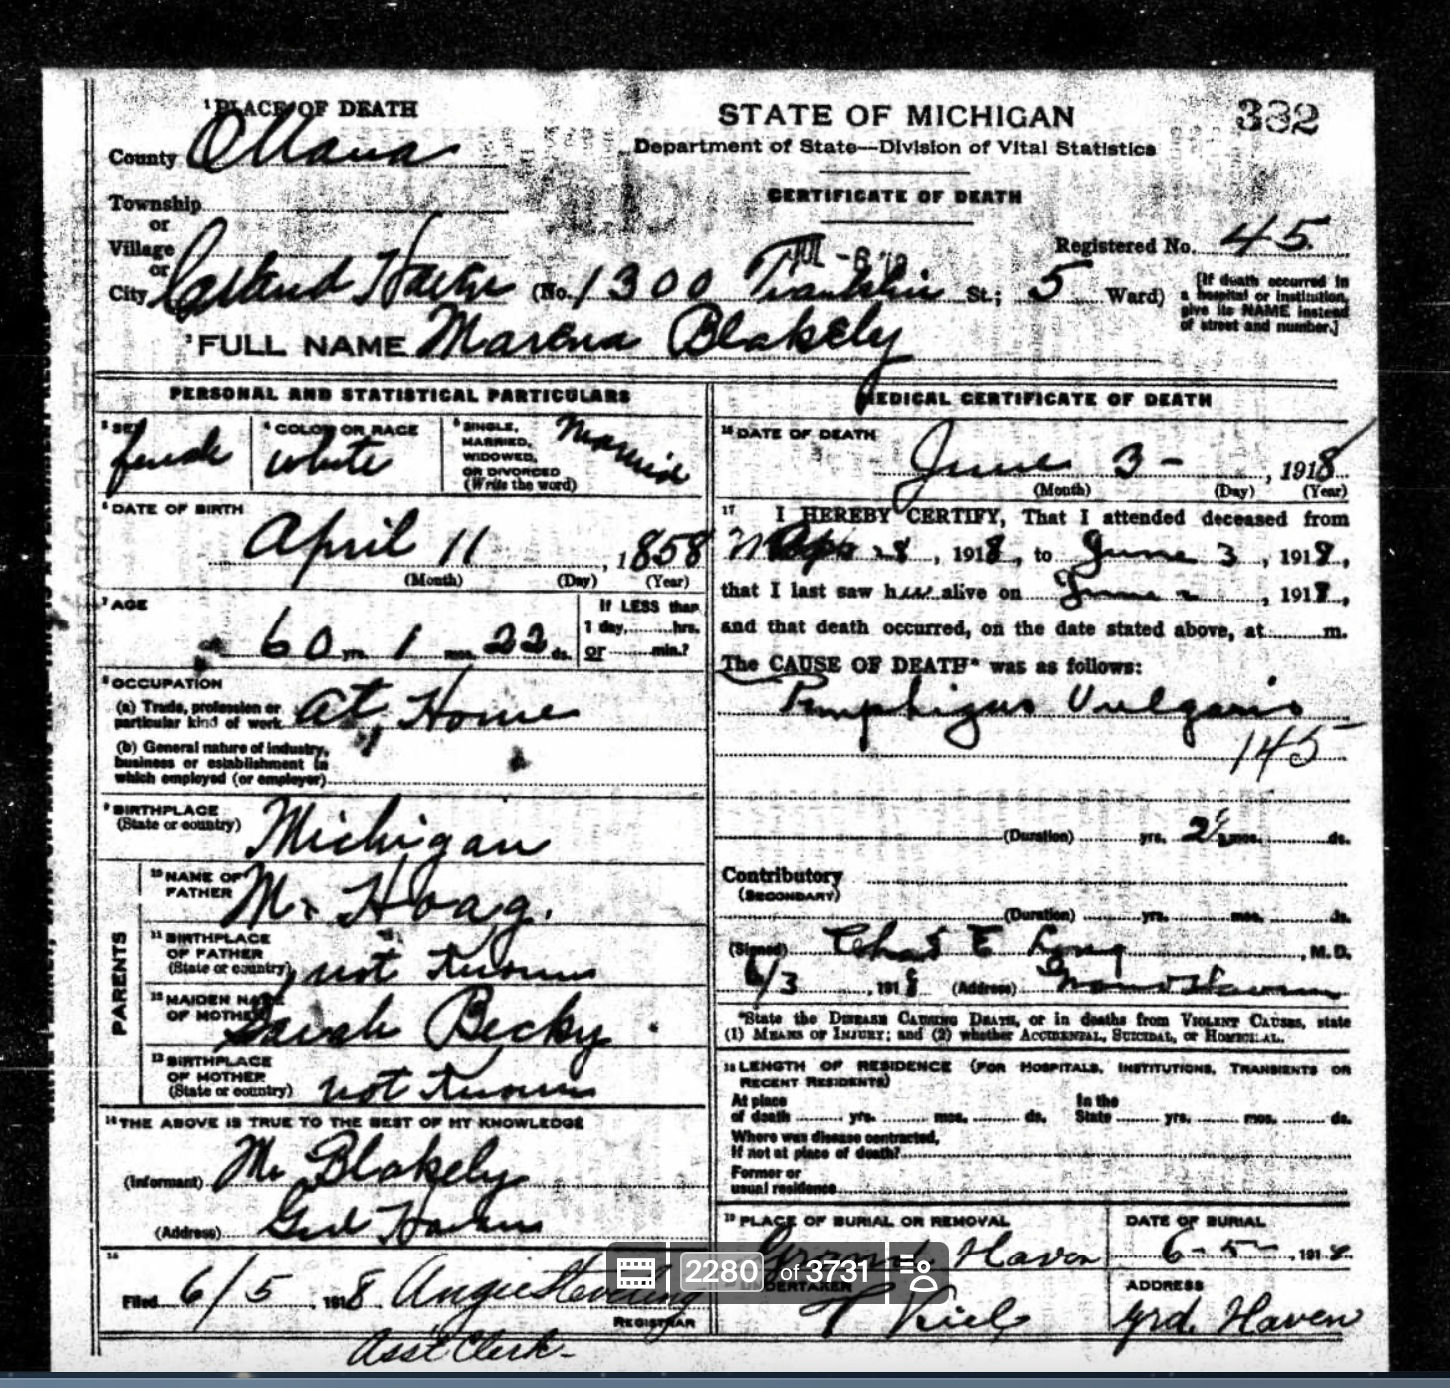 ¹PLACE OF DEATH
County Ottawa
STATE OF MICHIGAN
Department of State—Division of Vital Statistics
CERTIFICATE OF DEATH
332
Township
or
Village
or
City Grand Haven (No. 1300 Franklin St.; 5 Ward)
Registered No. 45
[If death occurred in
a hospital or institution,
give its NAME instead
of street and number.]
²FULL NAME Marena Blakely
PERSONAL AND STATISTICAL PARTICULARS
³SEX
female
⁴COLOR OR RACE
white
⁵SINGLE,
MARRIED,
WIDOWED,
OR DIVORCED
(Write the word)
Married
⁶DATE OF BIRTH
April 11, 1858
(Month) (Day) (Year)
⁷AGE
60 yrs. 1 mos. 22 ds.
If LESS than
1 day, hrs.
or min.?
⁸OCCUPATION
(a) Trade, profession or
particular kind of work at Home
(b) General nature of industry,
business or establishment in
which employed (or employer)
⁹BIRTHPLACE
(State or country) Michigan
PARENTS
¹⁰NAME OF
FATHER M. Hoag.
¹¹BIRTHPLACE
OF FATHER
(State or country) not Known
¹²MAIDEN NAME
OF MOTHER Sarah Becky
¹³BIRTHPLACE
OF MOTHER
(State or country) not Known
¹⁴THE ABOVE IS TRUE TO THE BEST OF MY KNOWLEDGE
(Informant) Mr Blakely
(Address) Grd Haven
¹⁵
Filed 6/5, 1918 Angie
REGISTRAR
Asst Clerk-
MEDICAL CERTIFICATE OF DEATH
¹⁶DATE OF DEATH
June 3-, 1918
(Month) (Day) (Year)
¹⁷ I HEREBY CERTIFY, That I attended deceased from
, 1918, to June 3, 1918,
that I last saw her alive on June, 1918,
and that death occurred, on the date stated above, at m.
The CAUSE OF DEATH* was as follows:
Pemphigus Vulgaris
145
(Duration) yrs. mos. ds.
Contributory
(SECONDARY)
(Duration) yrs. mos. ds.
(Signed) Chas E Long, M.D.
6/3, 1918 (Address) Grand Haven
*State the DISEASE CAUSING DEATH, or in deaths from VIOLENT CAUSES, state
(1) MEANS OF INJURY; and (2) whether ACCIDENTAL, SUICIDAL, or HOMICIDAL.
¹⁸LENGTH OF RESIDENCE (FOR HOSPITALS, INSTITUTIONS, TRANSIENTS OR
RECENT RESIDENTS)
At place
of death yrs. mos. ds.
In the
State yrs. mos. ds.
Where was disease contracted,
If not at place of death?
Former or
usual residence
¹⁹PLACE OF BURIAL OR REMOVAL
Grand Haven
DATE OF BURIAL
6-5-, 1918
UNDERTAKER
ADDRESS
Grd. Haven
2280 of 3731